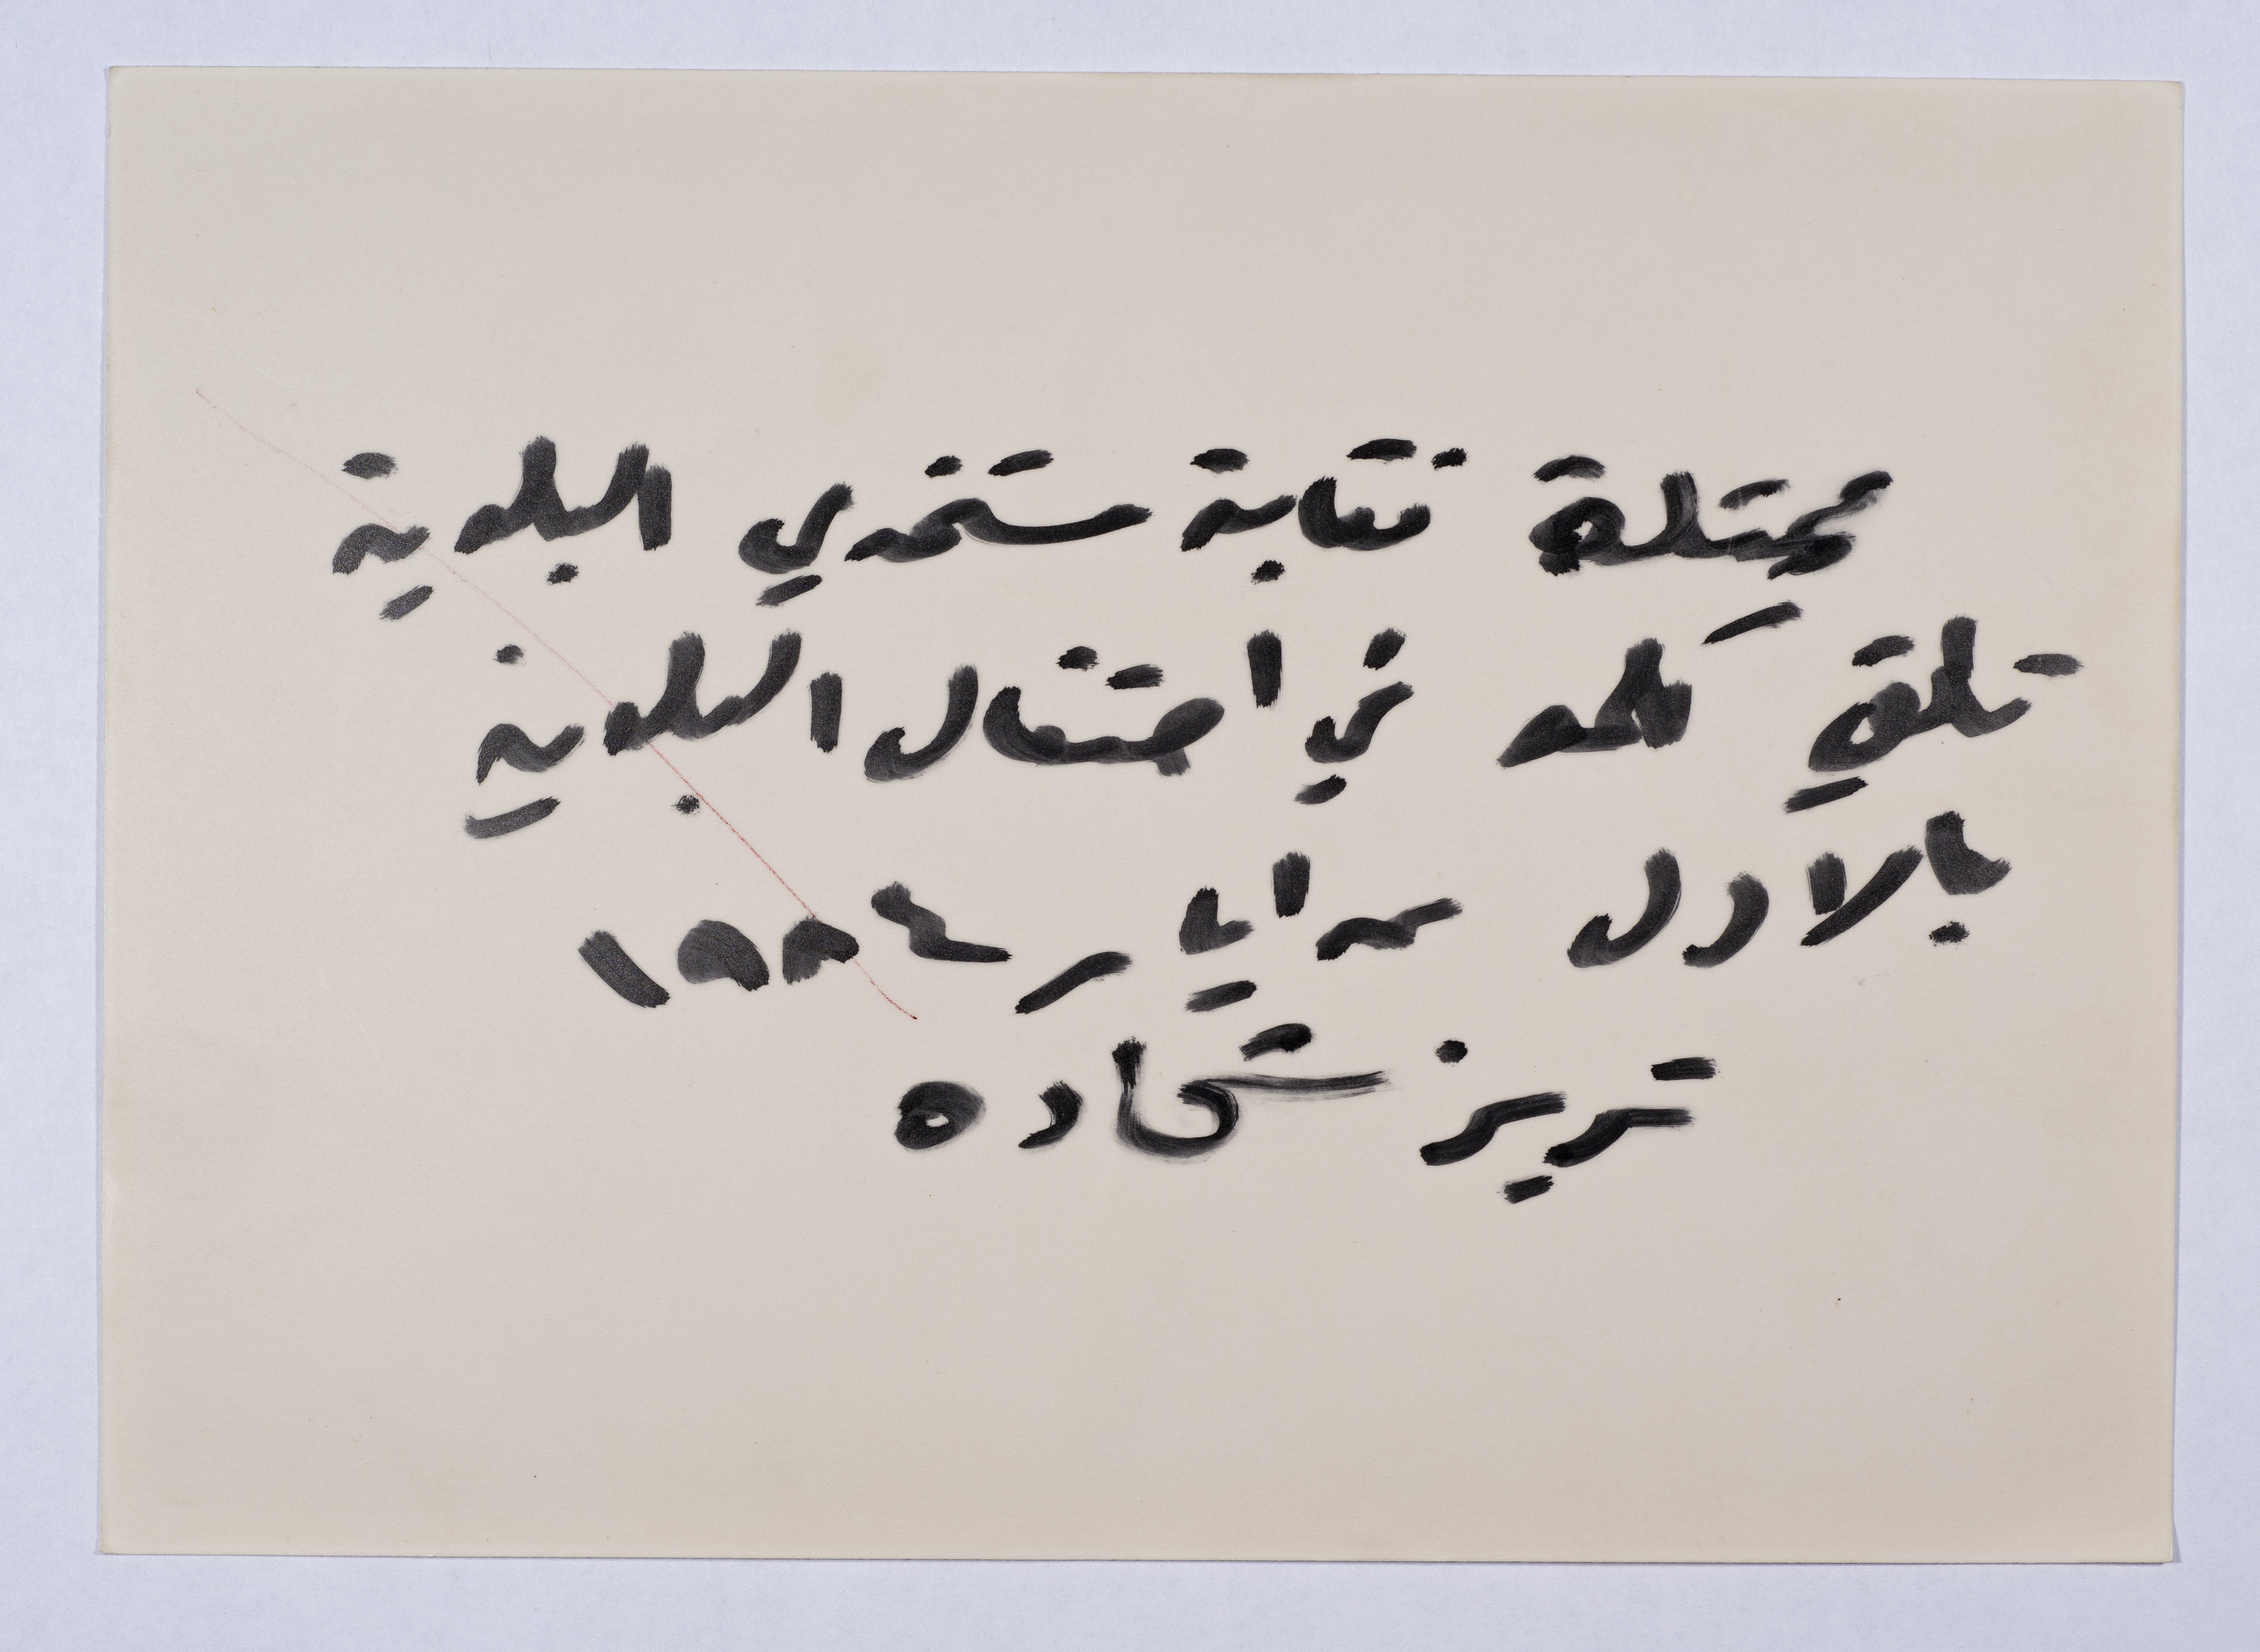 ممثلة نقابة مستخدمي البلدية
تلقي كلمة في احتفال البلدية
بالاول من ايار ١٩٨٤
تريز شحاده